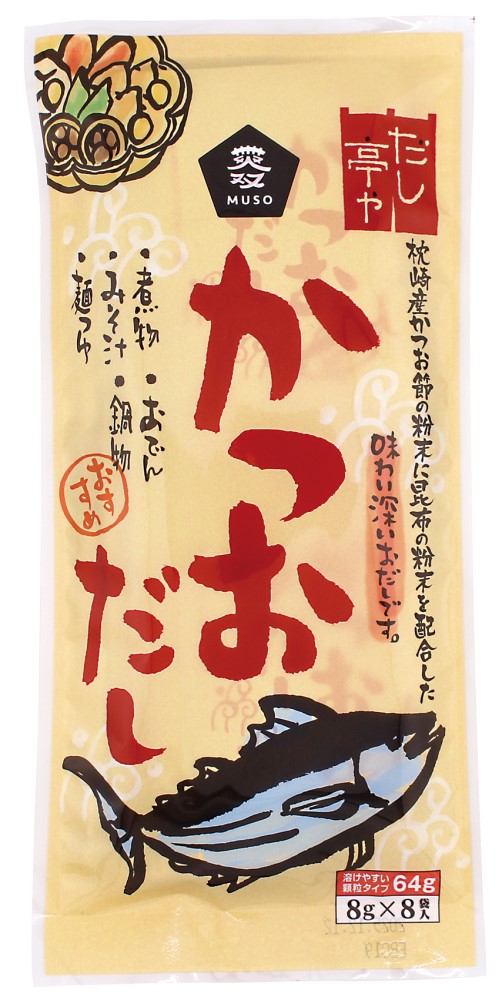 だし
亭や
無双
MUSO
枕崎産かつお節の粉末に昆布の粉末を配合した
味わい深いおだしです。
かつお
だし
・煮物
・みそ汁
・麺つゆ
・おでん
・鍋物
おすすめ
溶けやすい
顆粒タイプ
64g
8g×8袋入